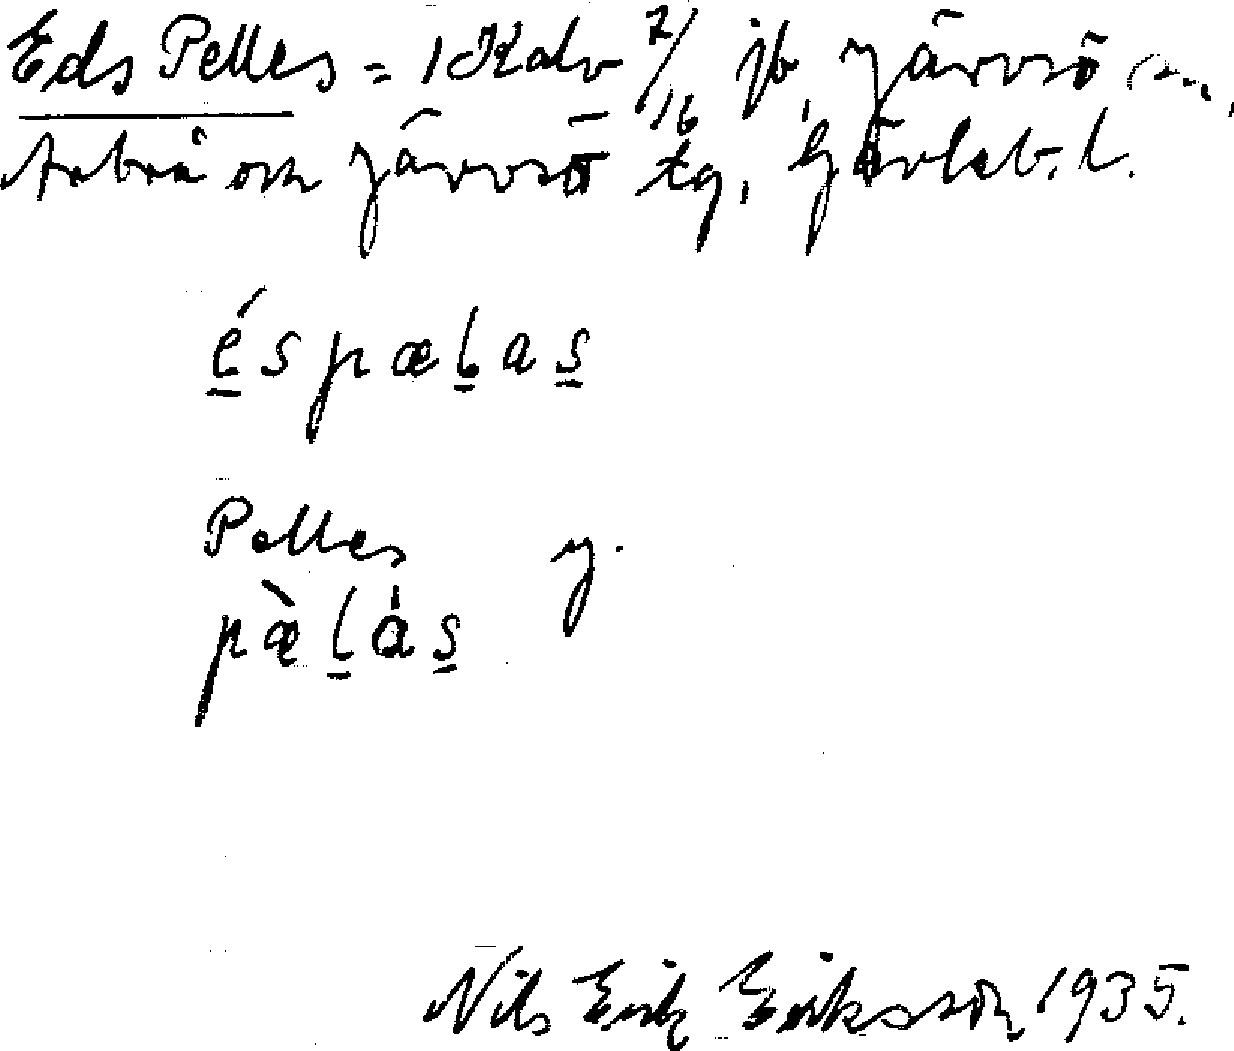 Eds Pelles = 1 Kalv 7/16 jb, Järvsö sn,
Arbrå och Järvsö tg, Gävleb. l.
é̱ s p æ ḻ a s̱
Pelles y.
p æ̀ ḻ á s̱
Nils Erik Eriksson 1935.